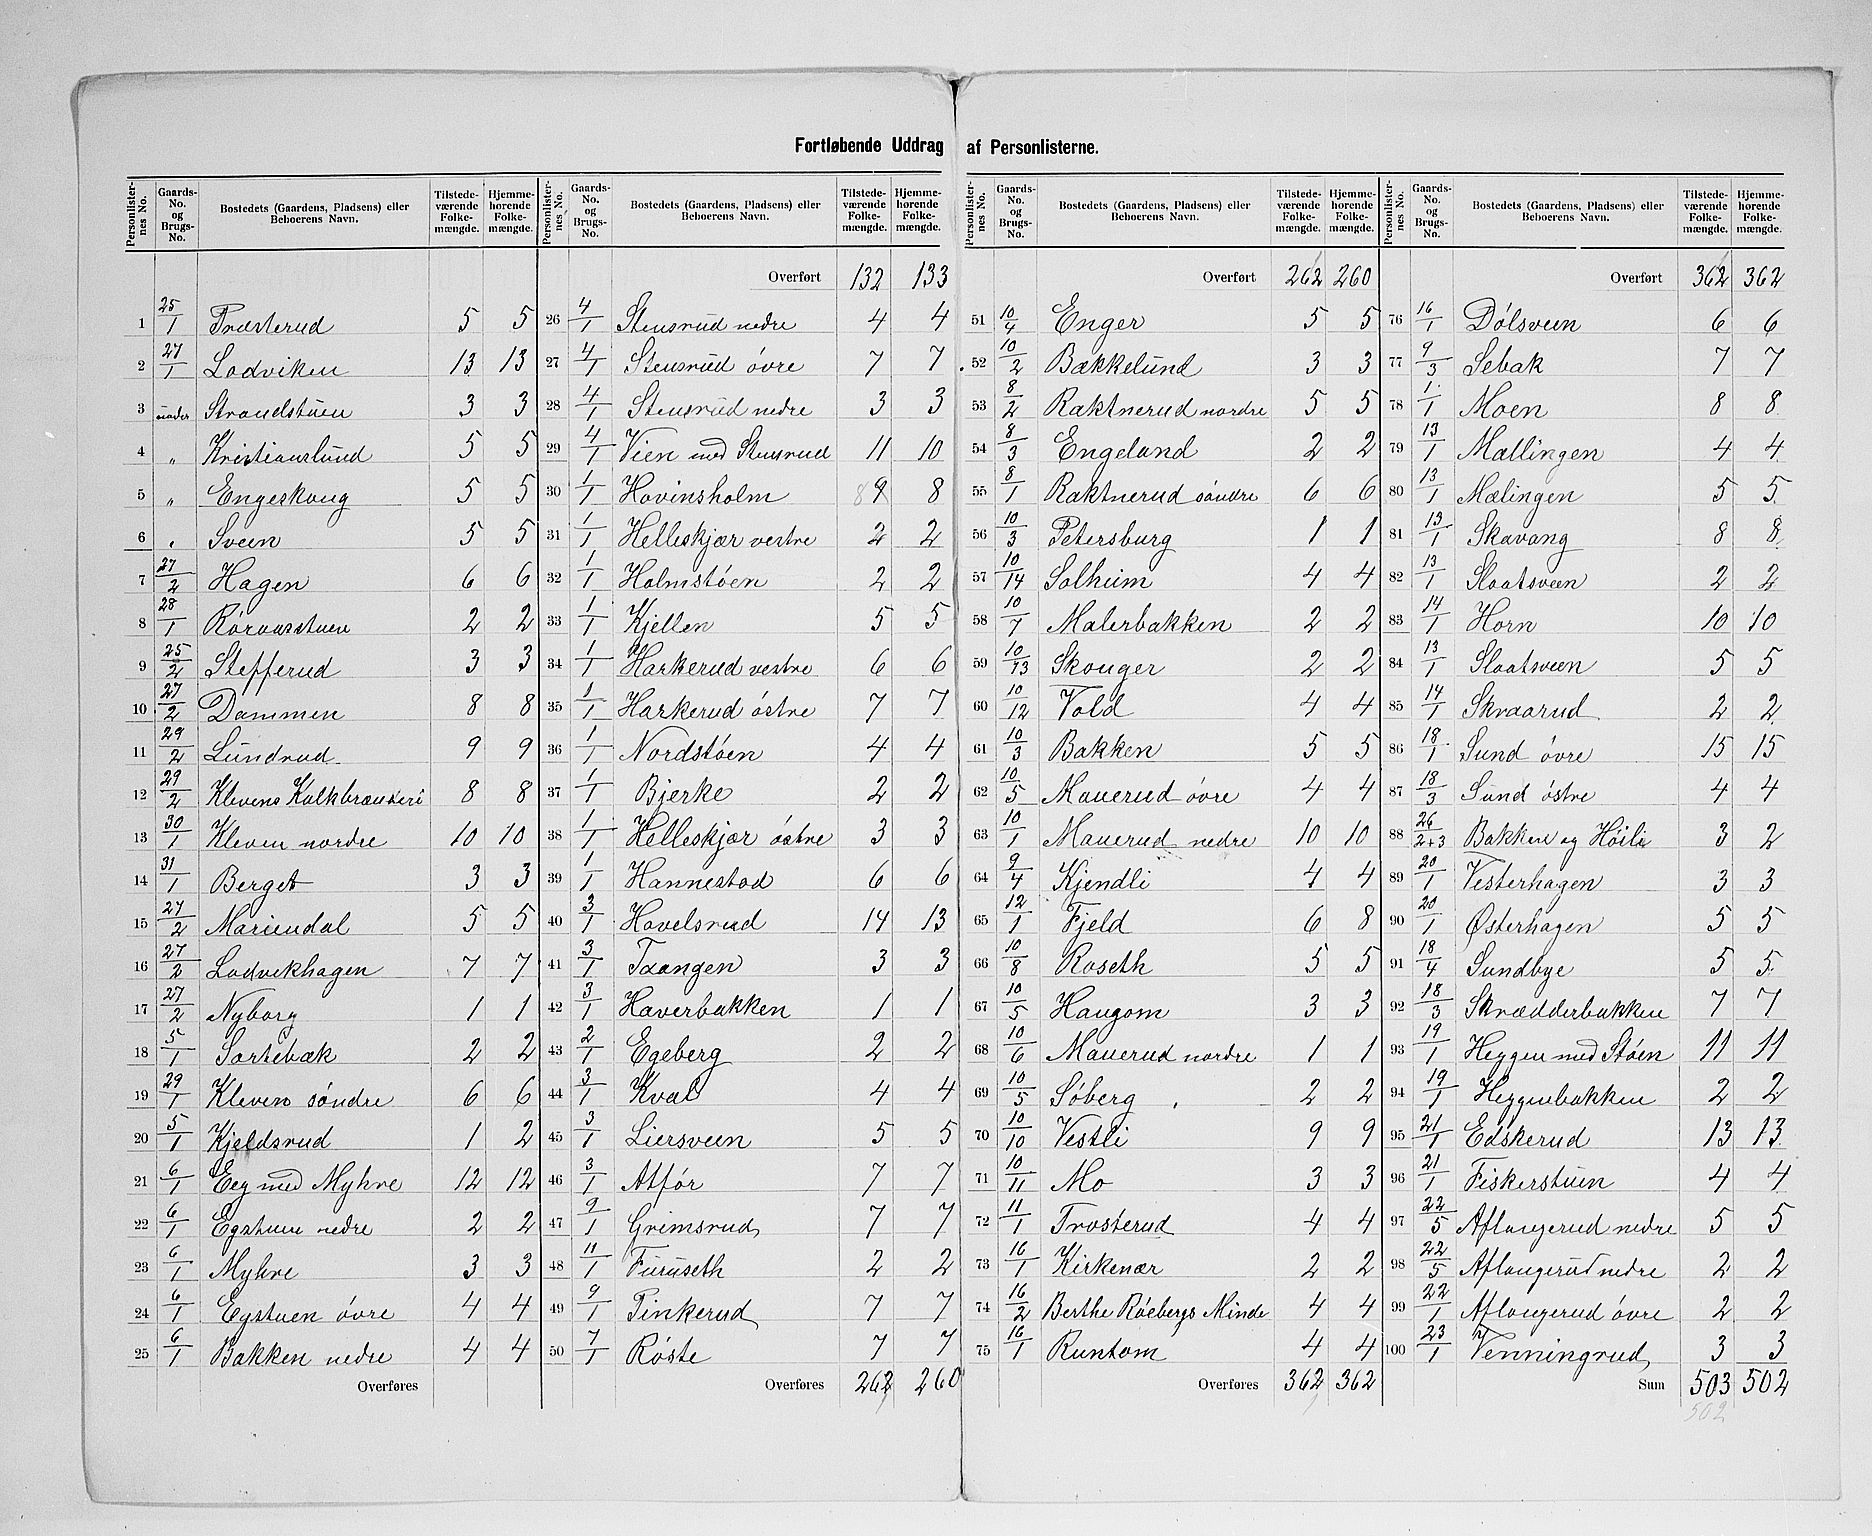 Fortløbende Uddrag af Personlisterne.
Personlister-nes No. | Gaards-No. og Brugs-No. | Bostedets (Gaardens, Pladsens) eller Beboerens Navn. | Tilstede-værende Folke-mængde. | Hjemme-hørende Folke-mængde.
1 25/1 Træsterud 5 5
2 27/1 Lodviken 13 13
3 under Strandstuen 3 3
4 " Kristianslund 5 5
5 " Engeskoug 5 5
6 " Sveen 5 5
7 27/2 Hagen 6 6
8 28/1 Röraasstuen 2 2
9 25/2 Stefferud 3 3
10 27/2 Dammen 8 8
11 29/2 Lundrud 9 9
12 29/2 Klevens Kalkbrænderi 8 8
13 30/1 Kleven nordre 10 10
14 31/1 Berget 3 3
15 27/2 Mariendal 5 5
16 27/2 Lodvikhagen 7 7
17 27/2 Nyborg 1 1
18 5/1 Sortebæk 2 2
19 29/1 Kleven söndre 6 6
20 5/1 Kjeldsrud 1 2
21 6/1 Eeg med Myhre 12 12
22 6/1 Egstuen nedre 2 2
23 6/1 Myhre 3 3
24 6/1 Egstuen övre 4 4
25 6/1 Bakken nedre 4 4
Overføres
Personlister-nes No. | Gaards-No. og Brugs-No. | Bostedets (Gaardens, Pladsens) eller Beboerens Navn. | Tilstede-værende Folke-mængde. | Hjemme-hørende Folke-mængde.
Overført 132 133
26 4/1 Stensrud nedre 4 4
27 4/1 Stensrud övre 7 7
28 4/1 Stensrud nedre 3 3
29 4/1 Vien med Stensrud 11 10
30 1/1 Hovinsholm 8 9 8
31 1/1 Helleskjær vestre 2 2
32 1/1 Holmstöen 2 2
33 1/1 Kjellen 5 5
34 1/1 Harkerud vestre 6 6
35 1/1 Harkerud östre 7 7
36 1/1 Nordstöen 4 4
37 1/1 Bjerke 2 2
38 1/1 Helleskjær östre 3 3
39 1/1 Hannestad 6 6
40 3/1 Hovelsrud 14 13
41 3/1 Tangen 3 3
42 3/1 Haverbakken 1 1
43 2/1 Egeberg 2 2
44 3/1 Kval 4 4
45 3/1 Liersveen 5 5
46 3/1 Atför 7 7
47 9/1 Grimsrud 7 7
48 11/1 Furuseth 2 2
49 9/1 Tinkerud 7 7
50 7/1 Röste 7 7
Overføres 262 260
Personlister-nes No. | Gaards-No. og Brugs-No. | Bostedets (Gaardens, Pladsens) eller Beboerens Navn. | Tilstede-værende Folke-mængde. | Hjemme-hørende Folke-mængde.
Overført 262 260
51 10/4 Enger 5 5
52 10/2 Bækkelund 3 3
53 8/2 Raktnerud nordre 5 5
54 8/3 Engeland 2 2
55 8/1 Raktnerud söndre 6 6
56 10/3 Petersburg 1 1
57 10/14 Solheim 4 4
58 10/7 Malerbakken 2 2
59 10/13 Skouger 2 2
60 10/12 Vold 4 4
61 10/3 Bakken 5 5
62 10/5 Mauerud övre 4 4
63 10/1 Mauerud nedre 10 10
64 9/4 Kjendli 4 4
65 12/1 Fjeld 6 8
66 10/8 Roseth 5 5
67 10/5 Haugom 3 3
68 10/6 Mauerud nordre 1 1
69 10/5 Söberg 2 2
70 10/10 Vestli 9 9
71 10/11 Mo 3 3
72 11/1 Trosterud 4 4
73 16/1 Kirkenær 2 2
74 16/2 Berthe Röebergs Minde 4 4
75 16/1 Runtom 4 4
Overføres 362 362
Personlister-nes No. | Gaards-No. og Brugs-No. | Bostedets (Gaardens, Pladsens) eller Beboerens Navn. | Tilstede-værende Folke-mængde. | Hjemme-hørende Folke-mængde.
Overført 362 362
76 16/1 Dölsveen 6 6
77 9/3 Sebak 7 7
78 1/1 Moen 8 8
79 13/1 Mællingen 4 4
80 13/1 Mælingen 5 5
81 13/1 Skavang 8 8
82 13/1 Slaatsveen 2 2
83 14/1 Horn 10 10
84 13/1 Slaatsveen 5 5
85 14/1 Skraarud 2 2
86 18/1 Sund övre 15 15
87 18/3 Sund östre 4 4
88 26/2+3 Bakken og Höili 3 2
89 20/1 Vesterhagen 3 3
90 20/1 Østerhagen 5 5
91 18/4 Sundbye 5 5
92 18/3 Skrædderbakken 7 7
93 19/1 Heggen med Stöen 11 11
94 19/1 Heggenbakken 2 2
95 21/1 Edskerud 13 13
96 21/1 Fiskerstuen 4 4
97 22/5 Aflangerud nedre 5 5
98 22/5 Aflangerud nedre 2 2
99 22/1 Aflangerud övre 2 2
100 23/1 Venningrud 3 3
Sum 503 502
502